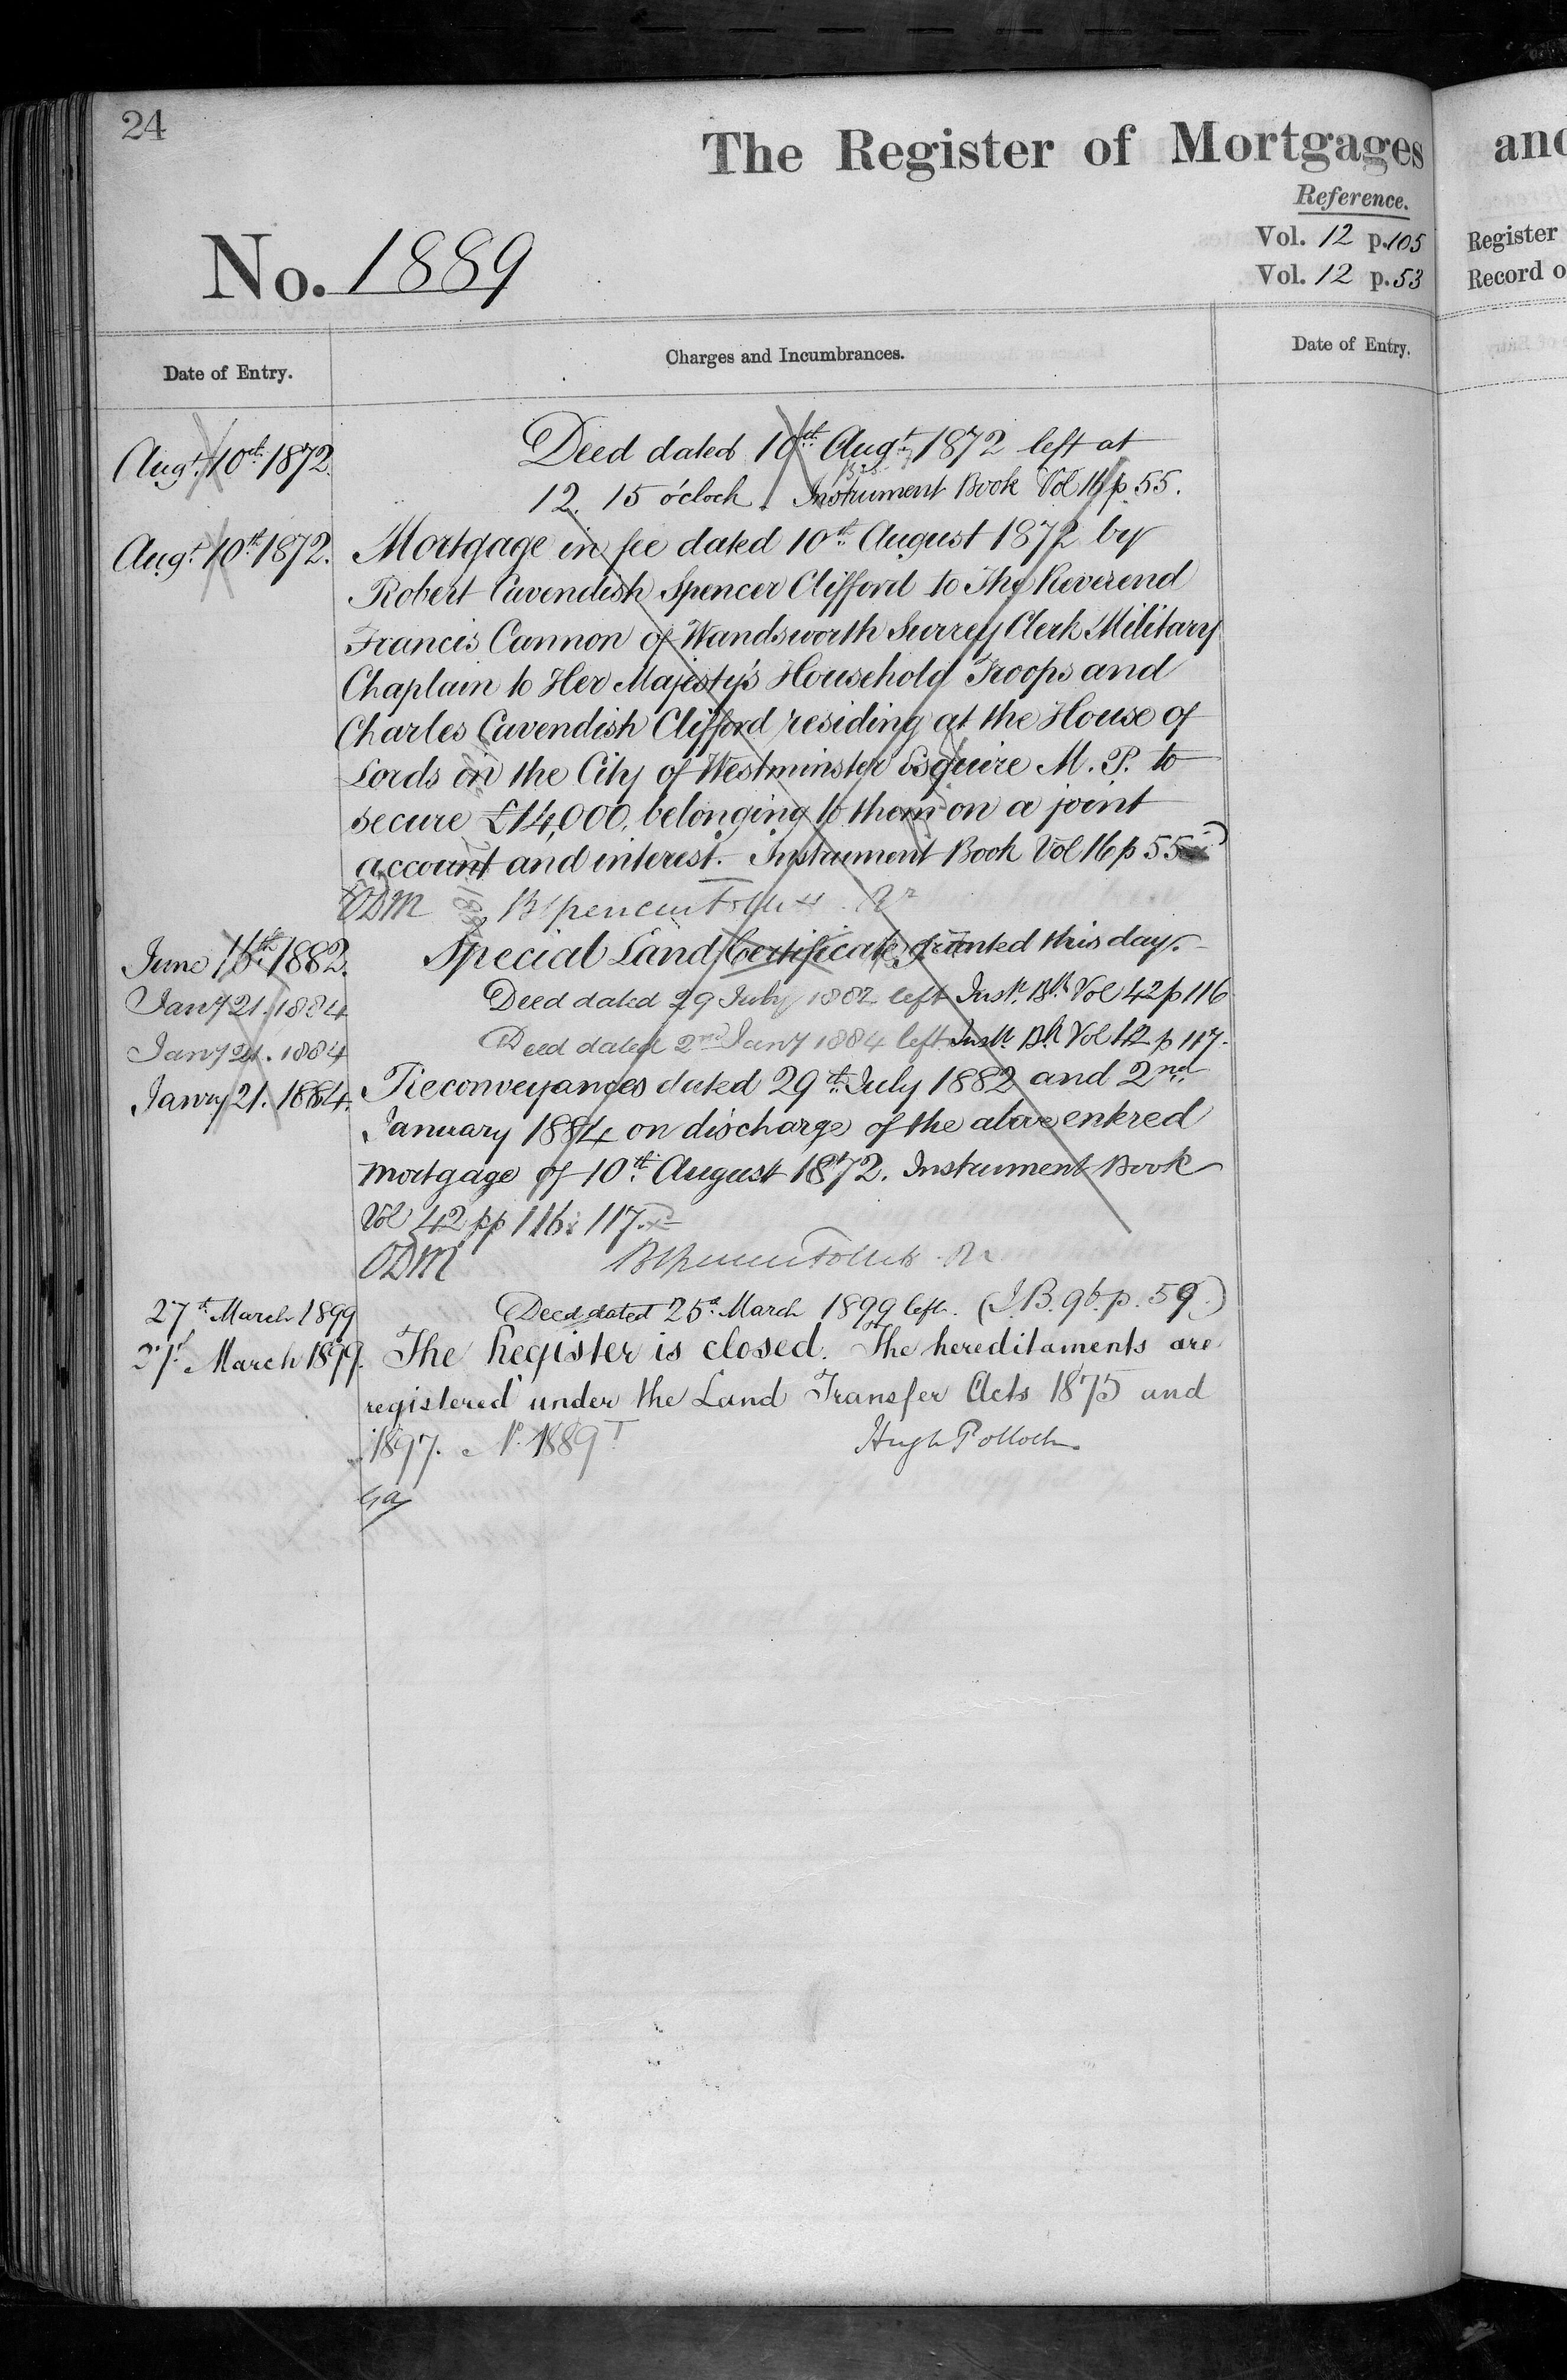 24
The Register of Mortgages and
Reference.
No. 1889
Vol. 12 p. 105 Register
Vol. 12 p. 53 Record o
Date of Entry. Charges and Incumbrances. Date of Entry.
Augt. 10th 1872. Deed dated 10th Augt. 1872 left at
12. 15 o'clock. Instrument Book Vol 16 p 55.
Augt. 10th 1872. Mortgage in fee dated 10th August 1872 by
Robert Cavendish Spencer Clifford to The Reverend
Francis Cannon of Wandsworth Surrey Clerk Military
Chaplain to Her Majesty's Household Troops and
Charles Cavendish Clifford residing at the House of
Lords in the City of Westminster Esquire M. P. to
secure £14,000, belonging to them on a joint
account and interest. Instrument Book Vol 16 p 55
ODM
June 15th 1882. Special Land Certificate granted this day.
Jany 21. 1884 Deed dated 29 July 1882 left Instr. Bk Vol 42 p 116
Jany 21. 1884 Deed dated 2nd Jany 1884 left Instr. Bk Vol 42 p 117.
Janry 21. 1884. Reconveyances dated 29th July 1882 and 2nd
January 1884 on discharge of the above entered
mortgage of 10th August 1872. Instrument Book
Vol 42 pp 116 117.
ODM
27th March 1899 Deed dated 25th March 1899 left. (I.B. 96. p. 59.)
27th March 1899. The Register is closed. The hereditaments are
registered under the Land Transfer Acts 1875 and
1897. No. 1889T Hugh Pollock.